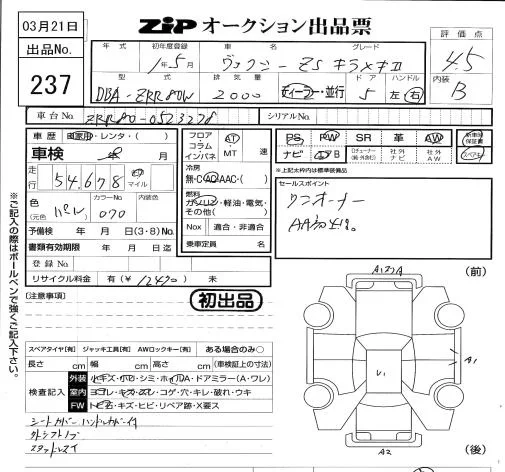 03月21日
ZIP オークション出品票
出品No.
237
評価点
4.5
内装
B
年式 初年度登録 車名 グレード
1年5月 ヴォクシー ZS キラメキII
型式 排気量 ドア ハンドル
DBA-ZRR80W 2000 ディーラー・並行 5 左 右
車台No. ZRR80-0523228 シリアルNo.
車歴 自家用・レンタ・( )
車検 年 月
走行 54,678 km マイル
色 (元色) パール カラーNo. 070 内装色
予備検 年 月 日(3・8)No.
書類有効期限 年 月 日迄
登録No
リサイクル料金 有 (¥ ) 未
フロア コラム インパネ AT・MT 速
冷房 無・C・AC・AAC・( )
燃料 ガソリン・軽油・電気・その他( )
Nox 適合・非適合
乗車定員 名
PS PW SR 革 AW
ナビ B 社外ナビ 社外AW
新車時保証書
スペアキー
※上記太枠内は標準装備品
セールスポイント
ワンオーナー
初出品
※ご記入の際はボールペンで強くご記入下さい。
[注意事項]
スペアタイヤ[有] ジャッキ工具[有] AWロックキー[有] ある場合のみ○
長さ cm 幅 cm 高さ cm (車検証上の寸法)
検査記入
外装 小キズ・ヘコ・シミ・ホイルA・ドアミラー(A・ワレ)
室内 ヨゴレ・キズ・スレ・コゲ・穴・キレ・破れ・ウキ
FW トビ石・キズ・ヒビ・リペア跡・X要ス
シートカバー ハンドルカバー付
外シフトノブ
スタッドレスイ
(前)
A1
U1
A2
(後)